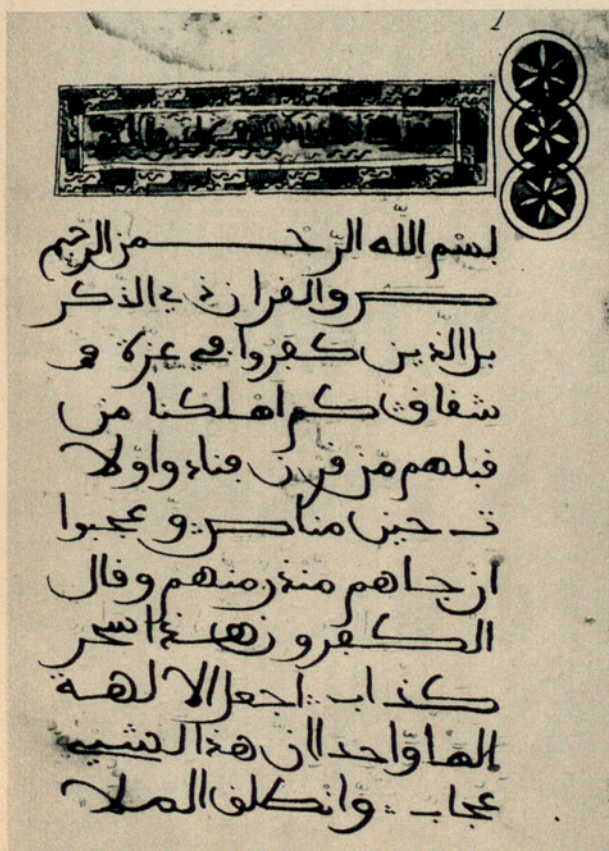 1
بسم الله الرحمن الرحيم
ص والقران ذي الذكر
بل الذين كفروا في عزة و
شقاق كم اهلكنا من
قبلهم مّن قرن فنادوا ولا
ت حين مناص وعجبوا
ان جاهم منذر منهم وقال
الكفرون هذا سحر
كذاب اجعل الالهة
الها وّاحدا ان هذا لشيء
عجاب وانطلق الملا